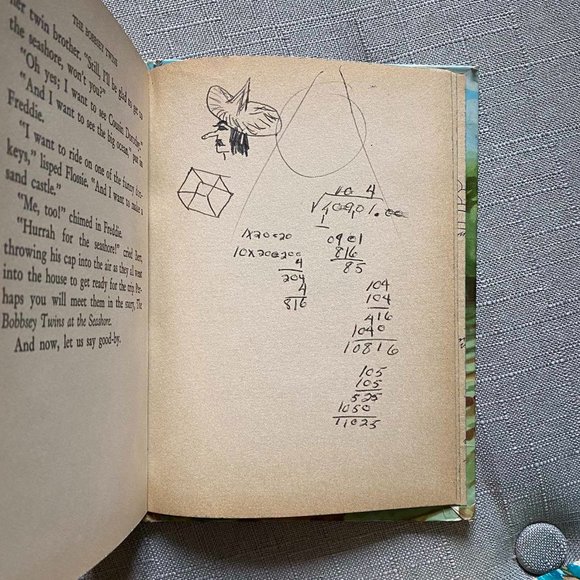 THE BOBBSEY TWINS
her twin brother. "Still, I'll be glad to get to
the seashore, won't you?"
"Oh yes; I want to see Cousin Dorothy."
"And I want to see the big ocean," put in
Freddie.
"I want to ride on one of the funny don-
keys," lisped Flossie. "And I want to make a
sand castle."
"Me, too!" chimed in Freddie.
"Hurrah for the seashore!" cried Bert,
throwing his cap into the air as they all went
into the house to get ready for the trip Per-
haps you will meet them in the story, The
Bobbsey Twins at the Seashore.
And now, let us say good-by.
10 4
√10901.00
1
1x20=20 0901
10x20=200 816
4 85
204
4
816
104
104
416
1040
10816
105
105
525
1050
11025